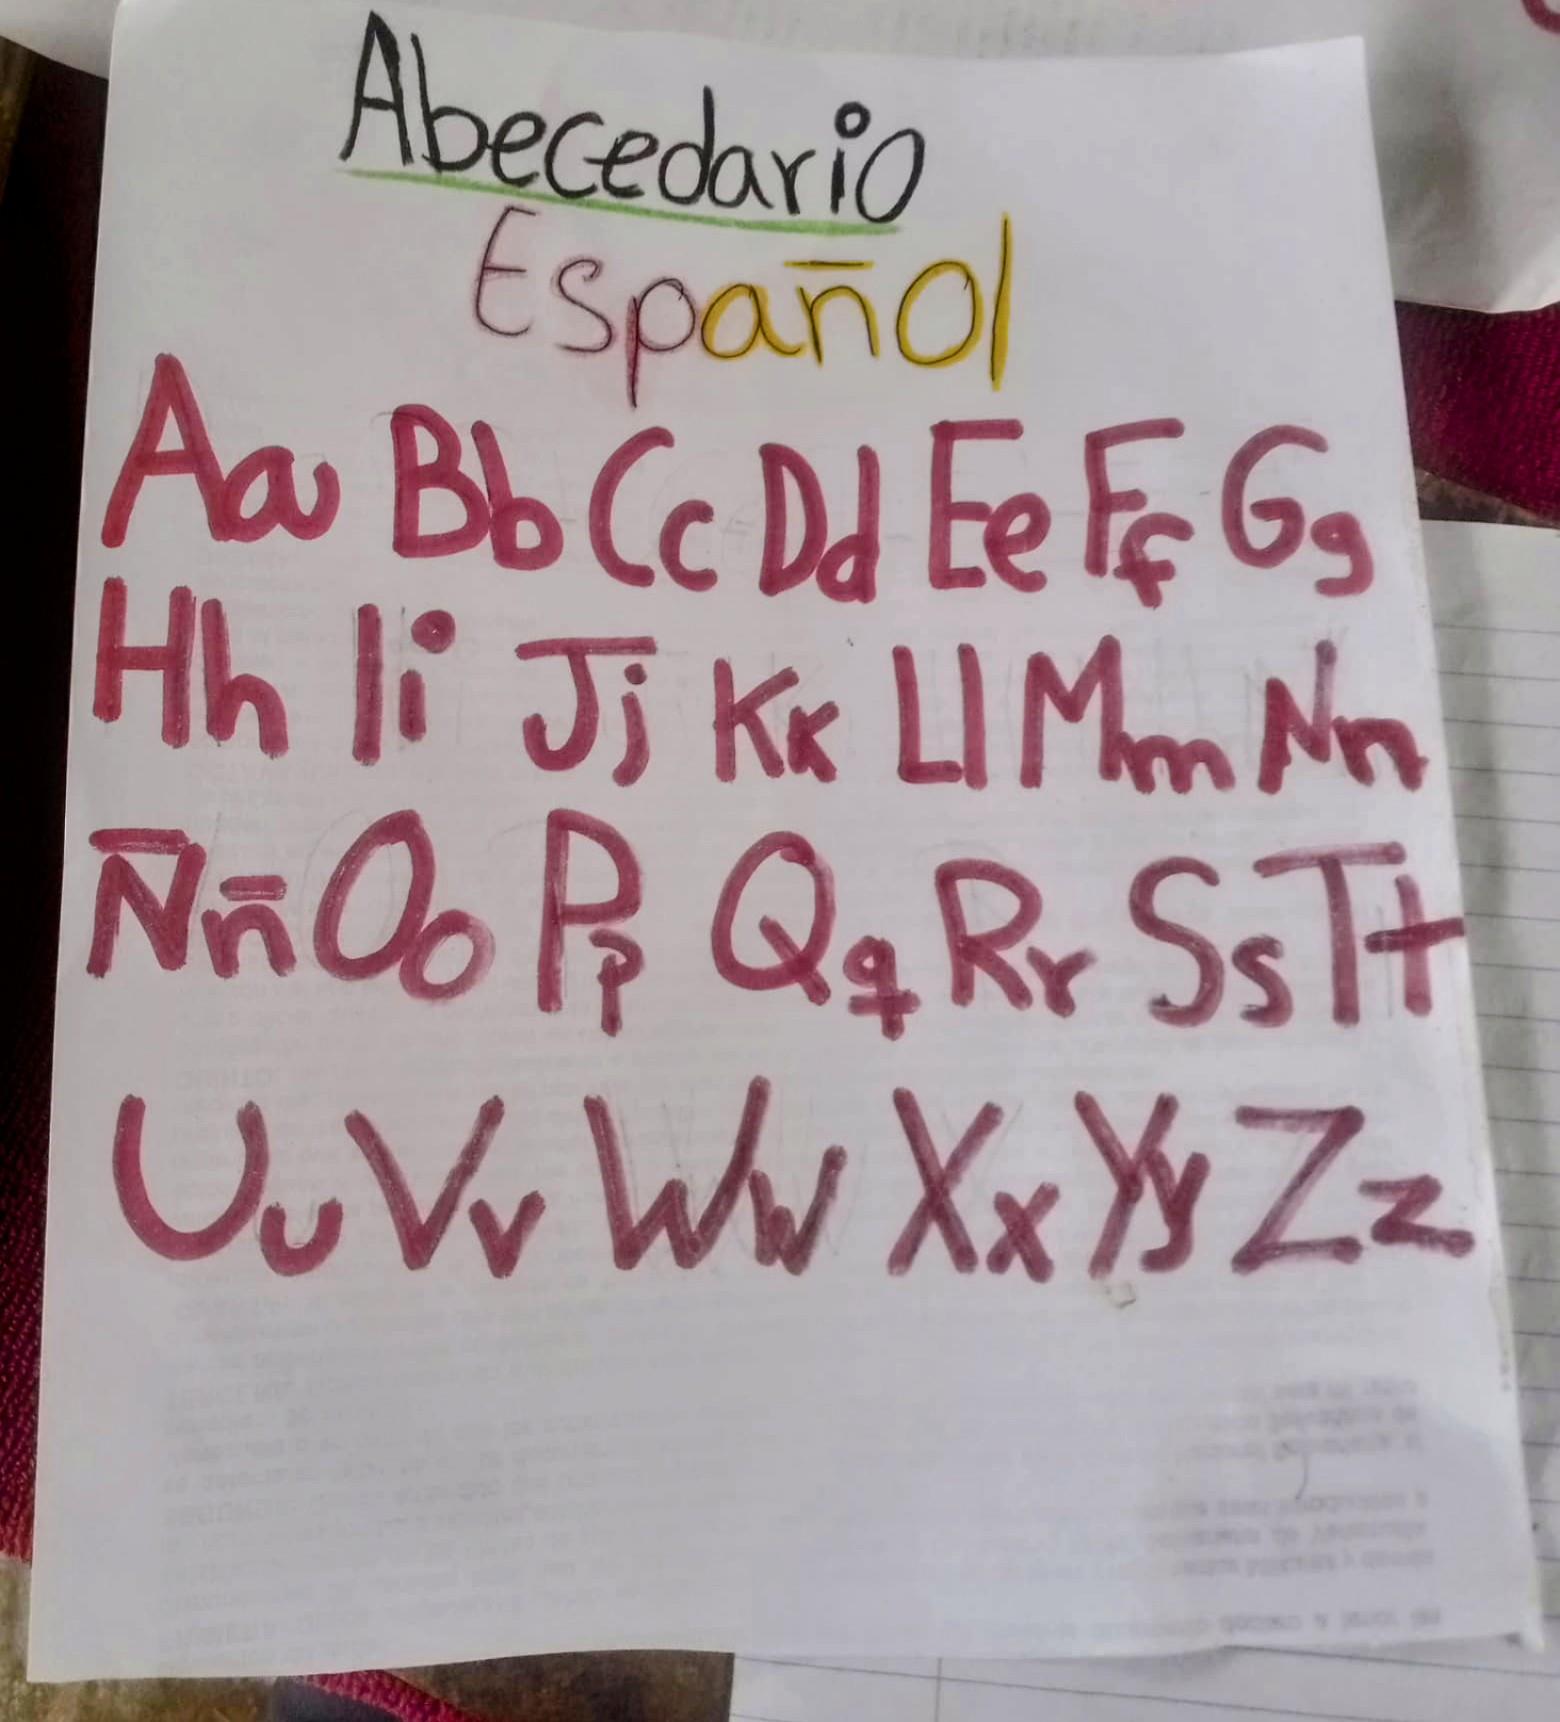 Abecedario
Español
Aa Bb Cc Dd Ee Ff Gg
Hh Ii Jj Kk Ll Mm Nn
Ññ Oo Pp Qq Rr Ss Tt
Uu Vv Ww Xx Yy Zz